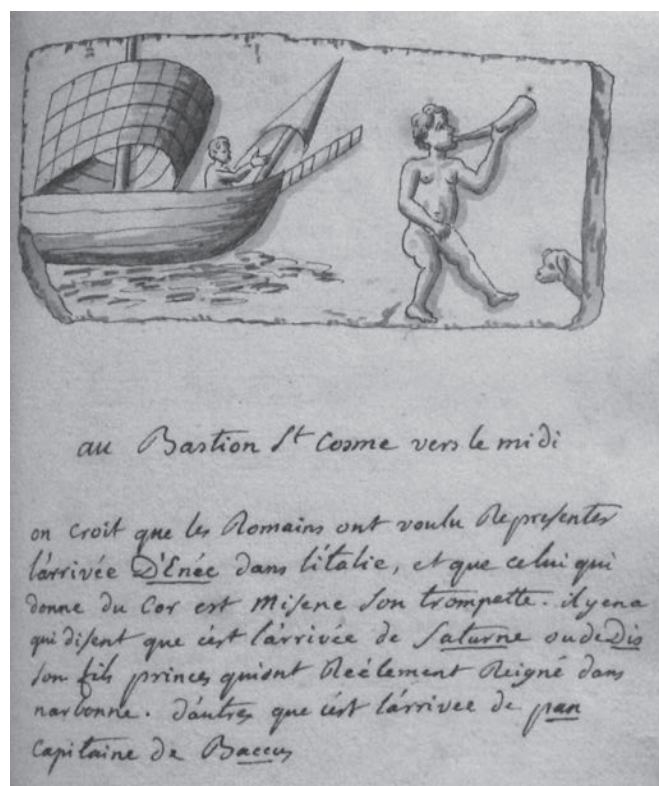 au Bastion St Cosme vers le midi
on croit que les Romains ont voulu Representer
l'arrivée D'Enée dans l'italie, et que celui qui
donne du Cor est Misene son trompette. il y en a
qui disent que c'est l'arrivée de Saturne ou de Dis
son fils princes qui ont Reélement Reigné dans
narbonne. d'autres que c'est l'arrivee de pan
Capitaine de Baccus